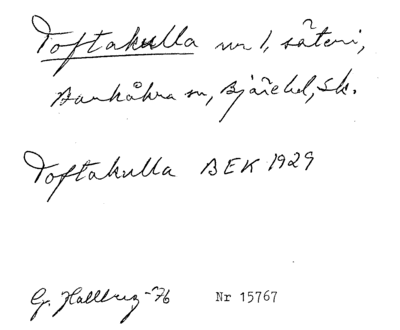 Toftakulla nr 1, säteri,
Barkåkra sn, Bjäre hd, Sk.
Toftakulla BEK 1929
G. Hallberg -76 Nr 15767